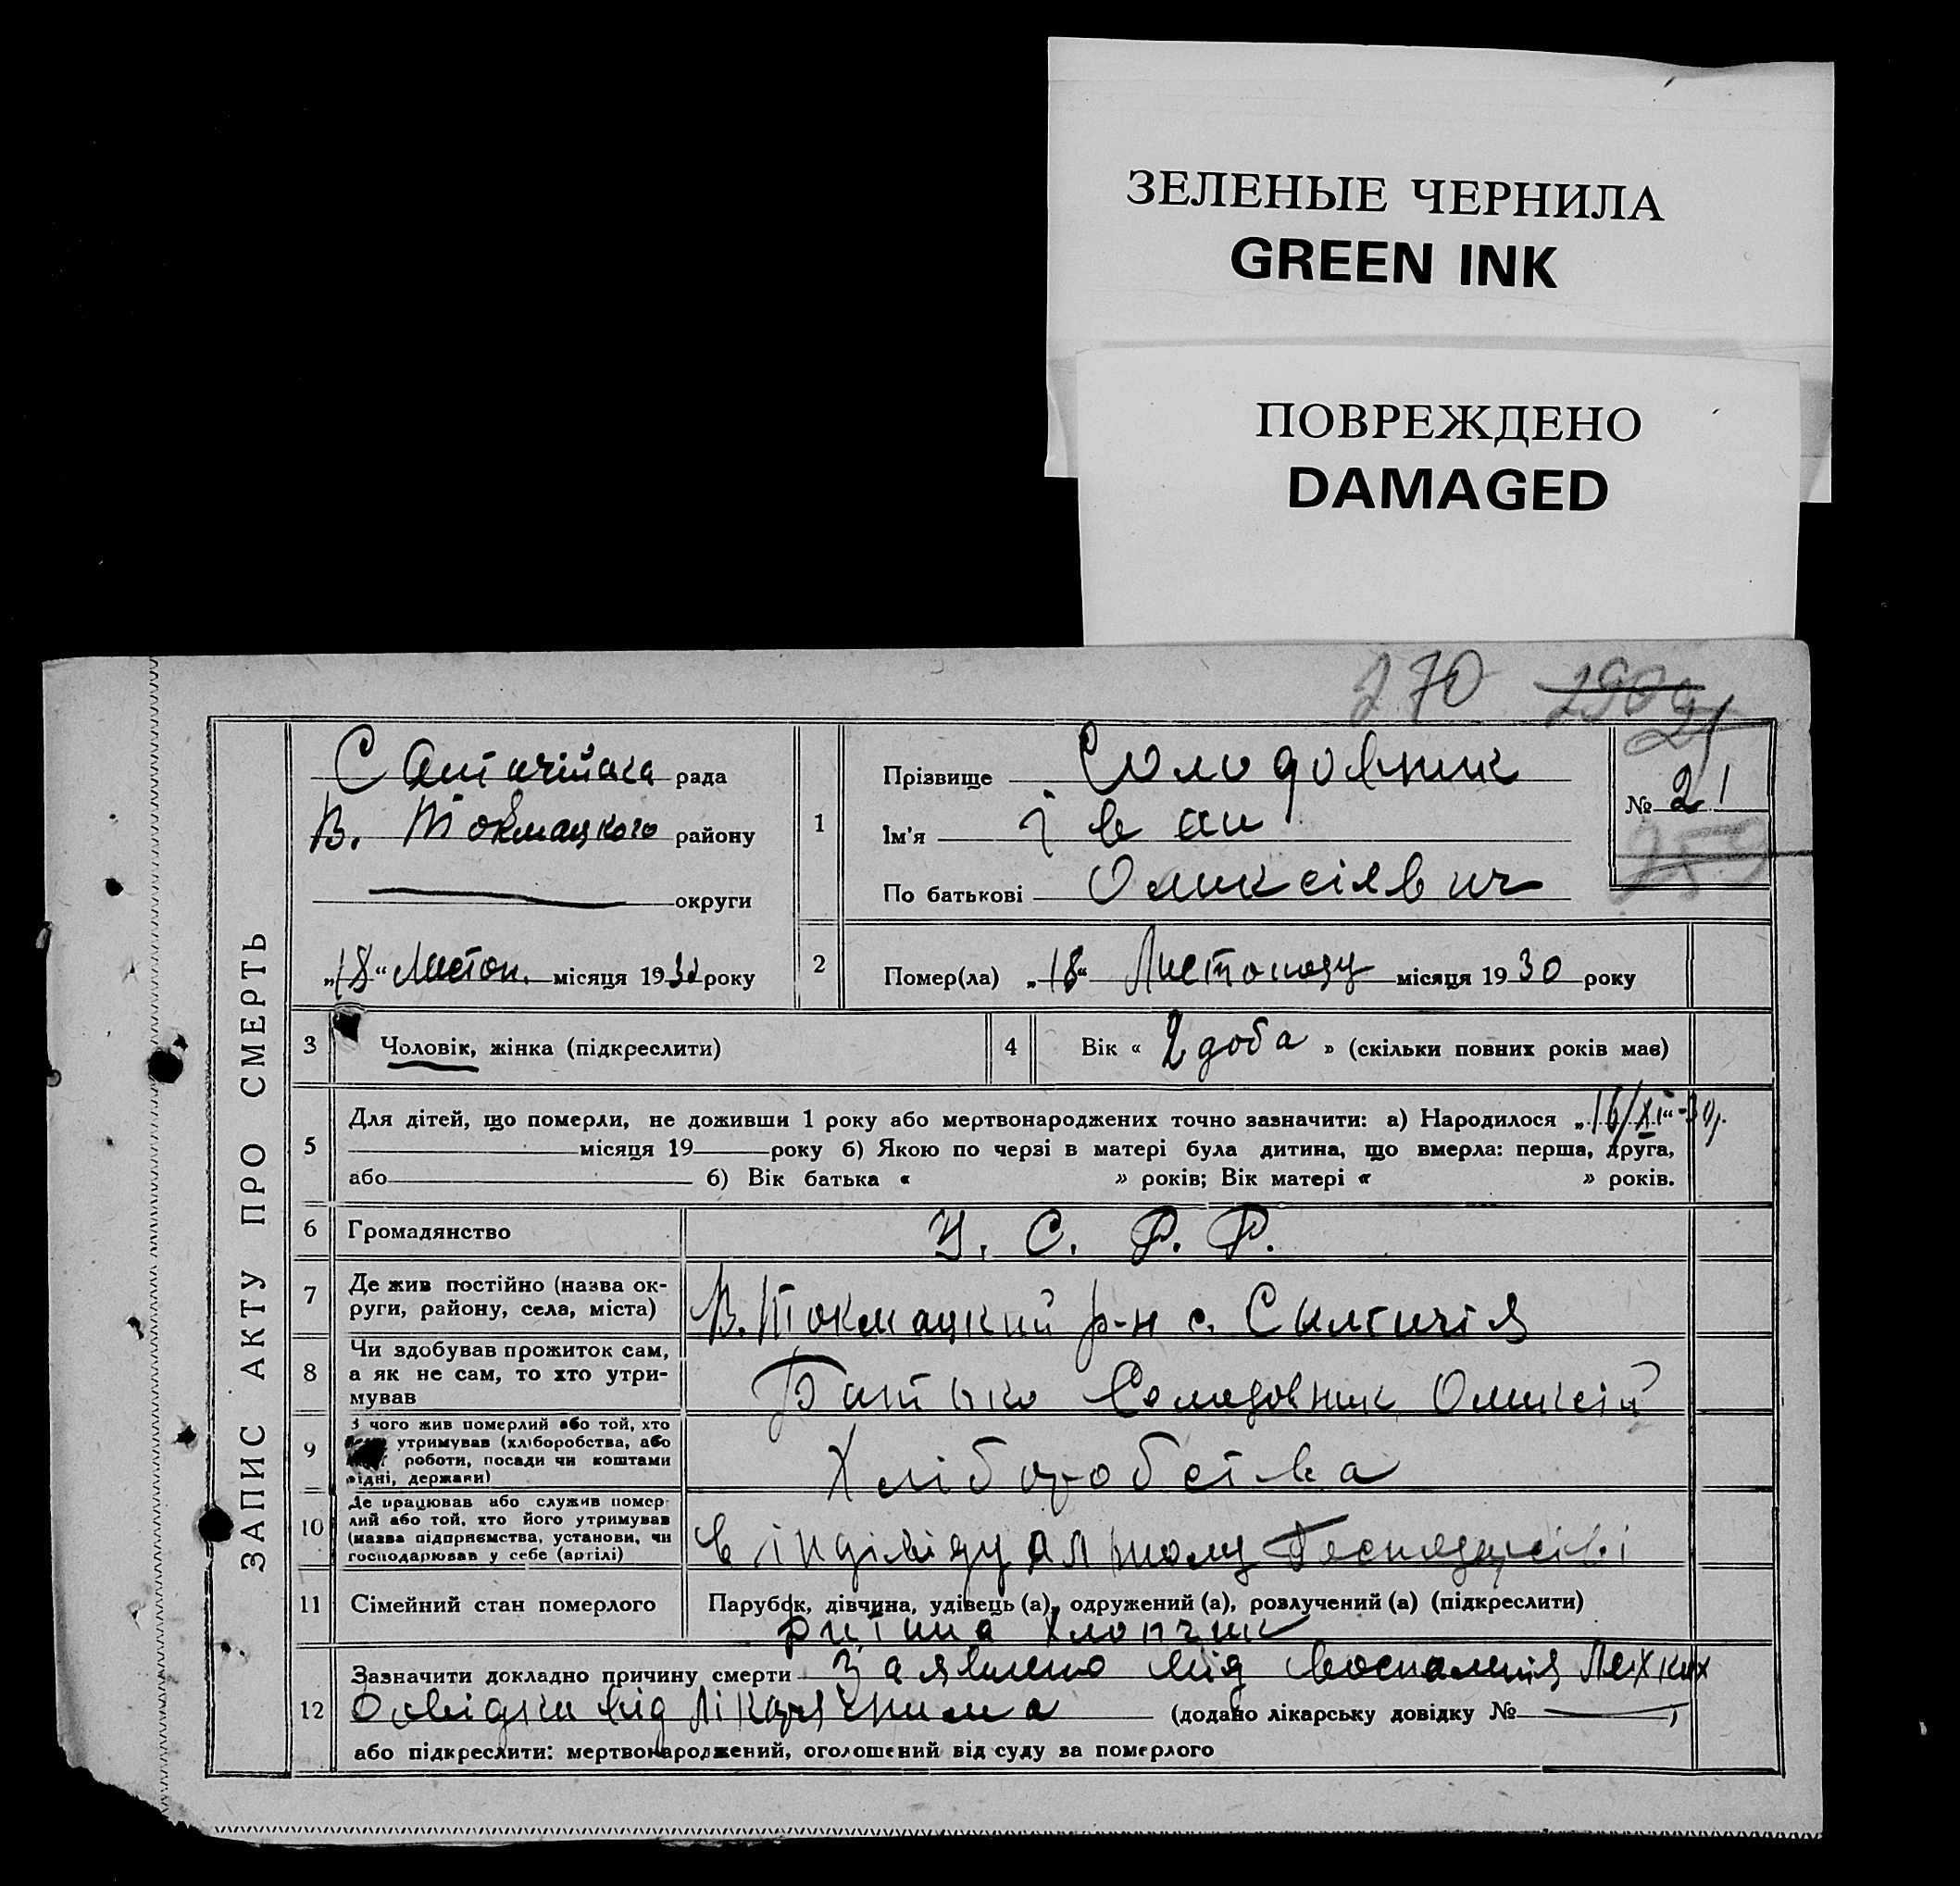 ЗЕЛЕНЫЕ ЧЕРНИЛА
GREEN INK
ПОВРЕЖДЕНО
DAMAGED
270
ЗАПИС АКТУ ПРО СМЕРТЬ
рада
В. Токмацкого району
округи
„18“ Листоп. місяця 1930 року
1
Прізвище Солодовник
Ім'я Іван
По батькові Оликсіявич
№ 21
259
2
Помер(ла) „18“ Листопаду місяця 1930 року
3
Чоловік, жінка (підкреслити)
4
Вік « 2 доба » (скільки повних років має)
5
Для дітей, що померли, не доживши 1 року або мертвонароджених точно зазначити: а) Народилося „16/XI“-30р.
місяця 19 року б) Якою по черзі в матері була дитина, що вмерла: перша, друга,
або б) Вік батька « » років; Вік матері « » років.
6
Громадянство
У. С. Р. Р.
7
Де жив постійно (назва ок-
руги, району, села, міста)
В. Токмацкий р-н с.
8
Чи здобував прожиток сам,
а як не сам, то хто утри-
мував
Батько Солодовник Оликсій
9
З чого жив померлий або той, хто
утримував (хліборобства, або
роботи, посади чи коштами
рідні, держави)
Хліборобства
10
Де працював або служив помер-
лий або той, хто його утримував
(назва підприємства, установи, чи
господарював у себе (артілі)
в індівідуальному Господарстві
11
Сімейний стан померлого
Парубок, дівчина, удівець (а), одружений (а), розлучений (а) (підкреслити)
хлопчик
12
Зазначити докладно причину смерти Заявлено від воспаления Лехких
Довідки від лікаря нима (додано лікарську довідку №
або підкреслити: мертвонароджений, оголошений від суду за померлого